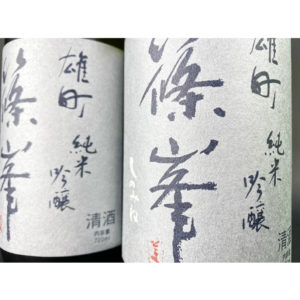 雄町
純米
吟醸
篠峯
清酒
内容量
720ml
雄町
純米
吟醸
篠峯
しのみね
清酒